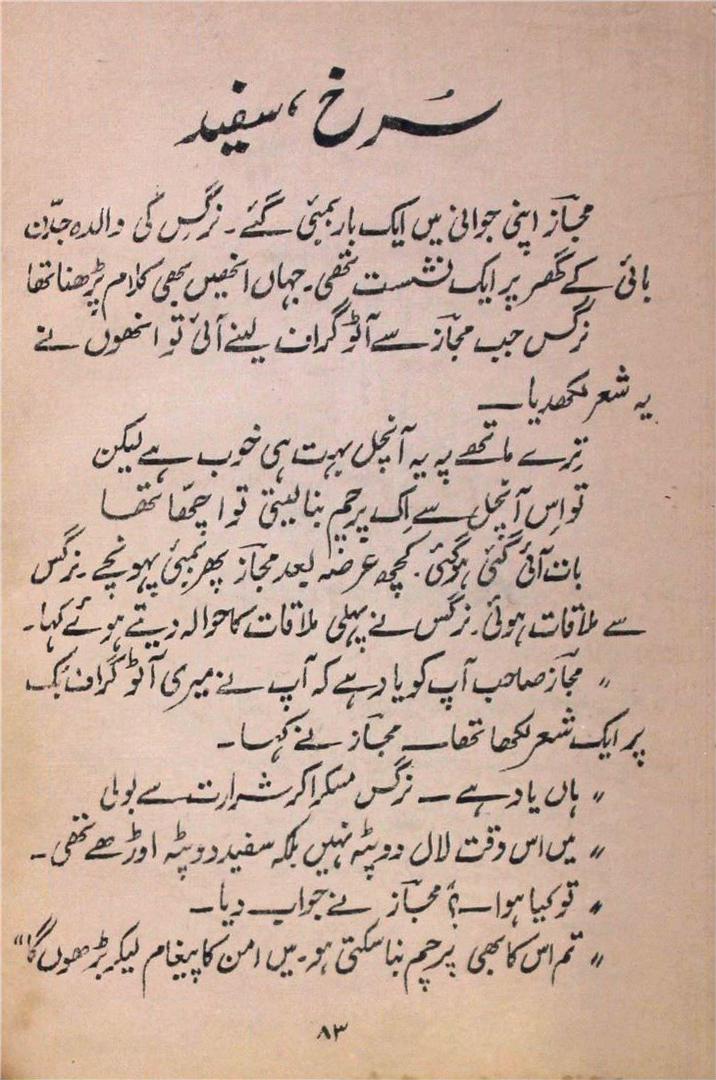 سُرخ، سفید
مجازؔ اپنی جوانی میں ایک بار بمبئی گئے۔ نرگس کی والدہ جدّن
بائی کے گھر پر ایک نشست تھی۔ جہاں انھیں بھی کلام پڑھنا تھا
نرگس جب مجازؔ سے آٹوگراف لینے آئی تو انھوں نے
یہ شعر لکھدیا—
تِرے ماتھے پہ یہ آنچل بہت ہی خوب ہے لیکن
تو اِس آنچل سے اِک پرچم بنا لیتی تو اچھّا تھا
بات آئی گئی ہوگئی۔ کچھ عرضہ بعد مجازؔ پھر بمبئی پہونچے۔ نرگس
سے ملاقات ہوئی۔ نرگس نے پہلی ملاقات کا حوالہ دیتے ہوئے کہا۔
" مجازؔ صاحب آپ کو یاد ہے کہ آپ نے میری آٹوگراف بُک
پر ایک شعر لکھا تھا— مجازؔ نے کہا۔
" ہاں یاد ہے — نرگس مسکرا کر شرارت سے بولی
" میں اس وقت لال دوپٹہ نہیں بلکہ سفید دوپٹہ اوڑھے تھی۔
" تو کیا ہوا—؟ مجازؔ نے جواب دیا۔
" تم اس کا بھی پرچم بنا سکتی ہو۔ میں امن کا پیغام لیکر بڑھوں گا"
۸۳